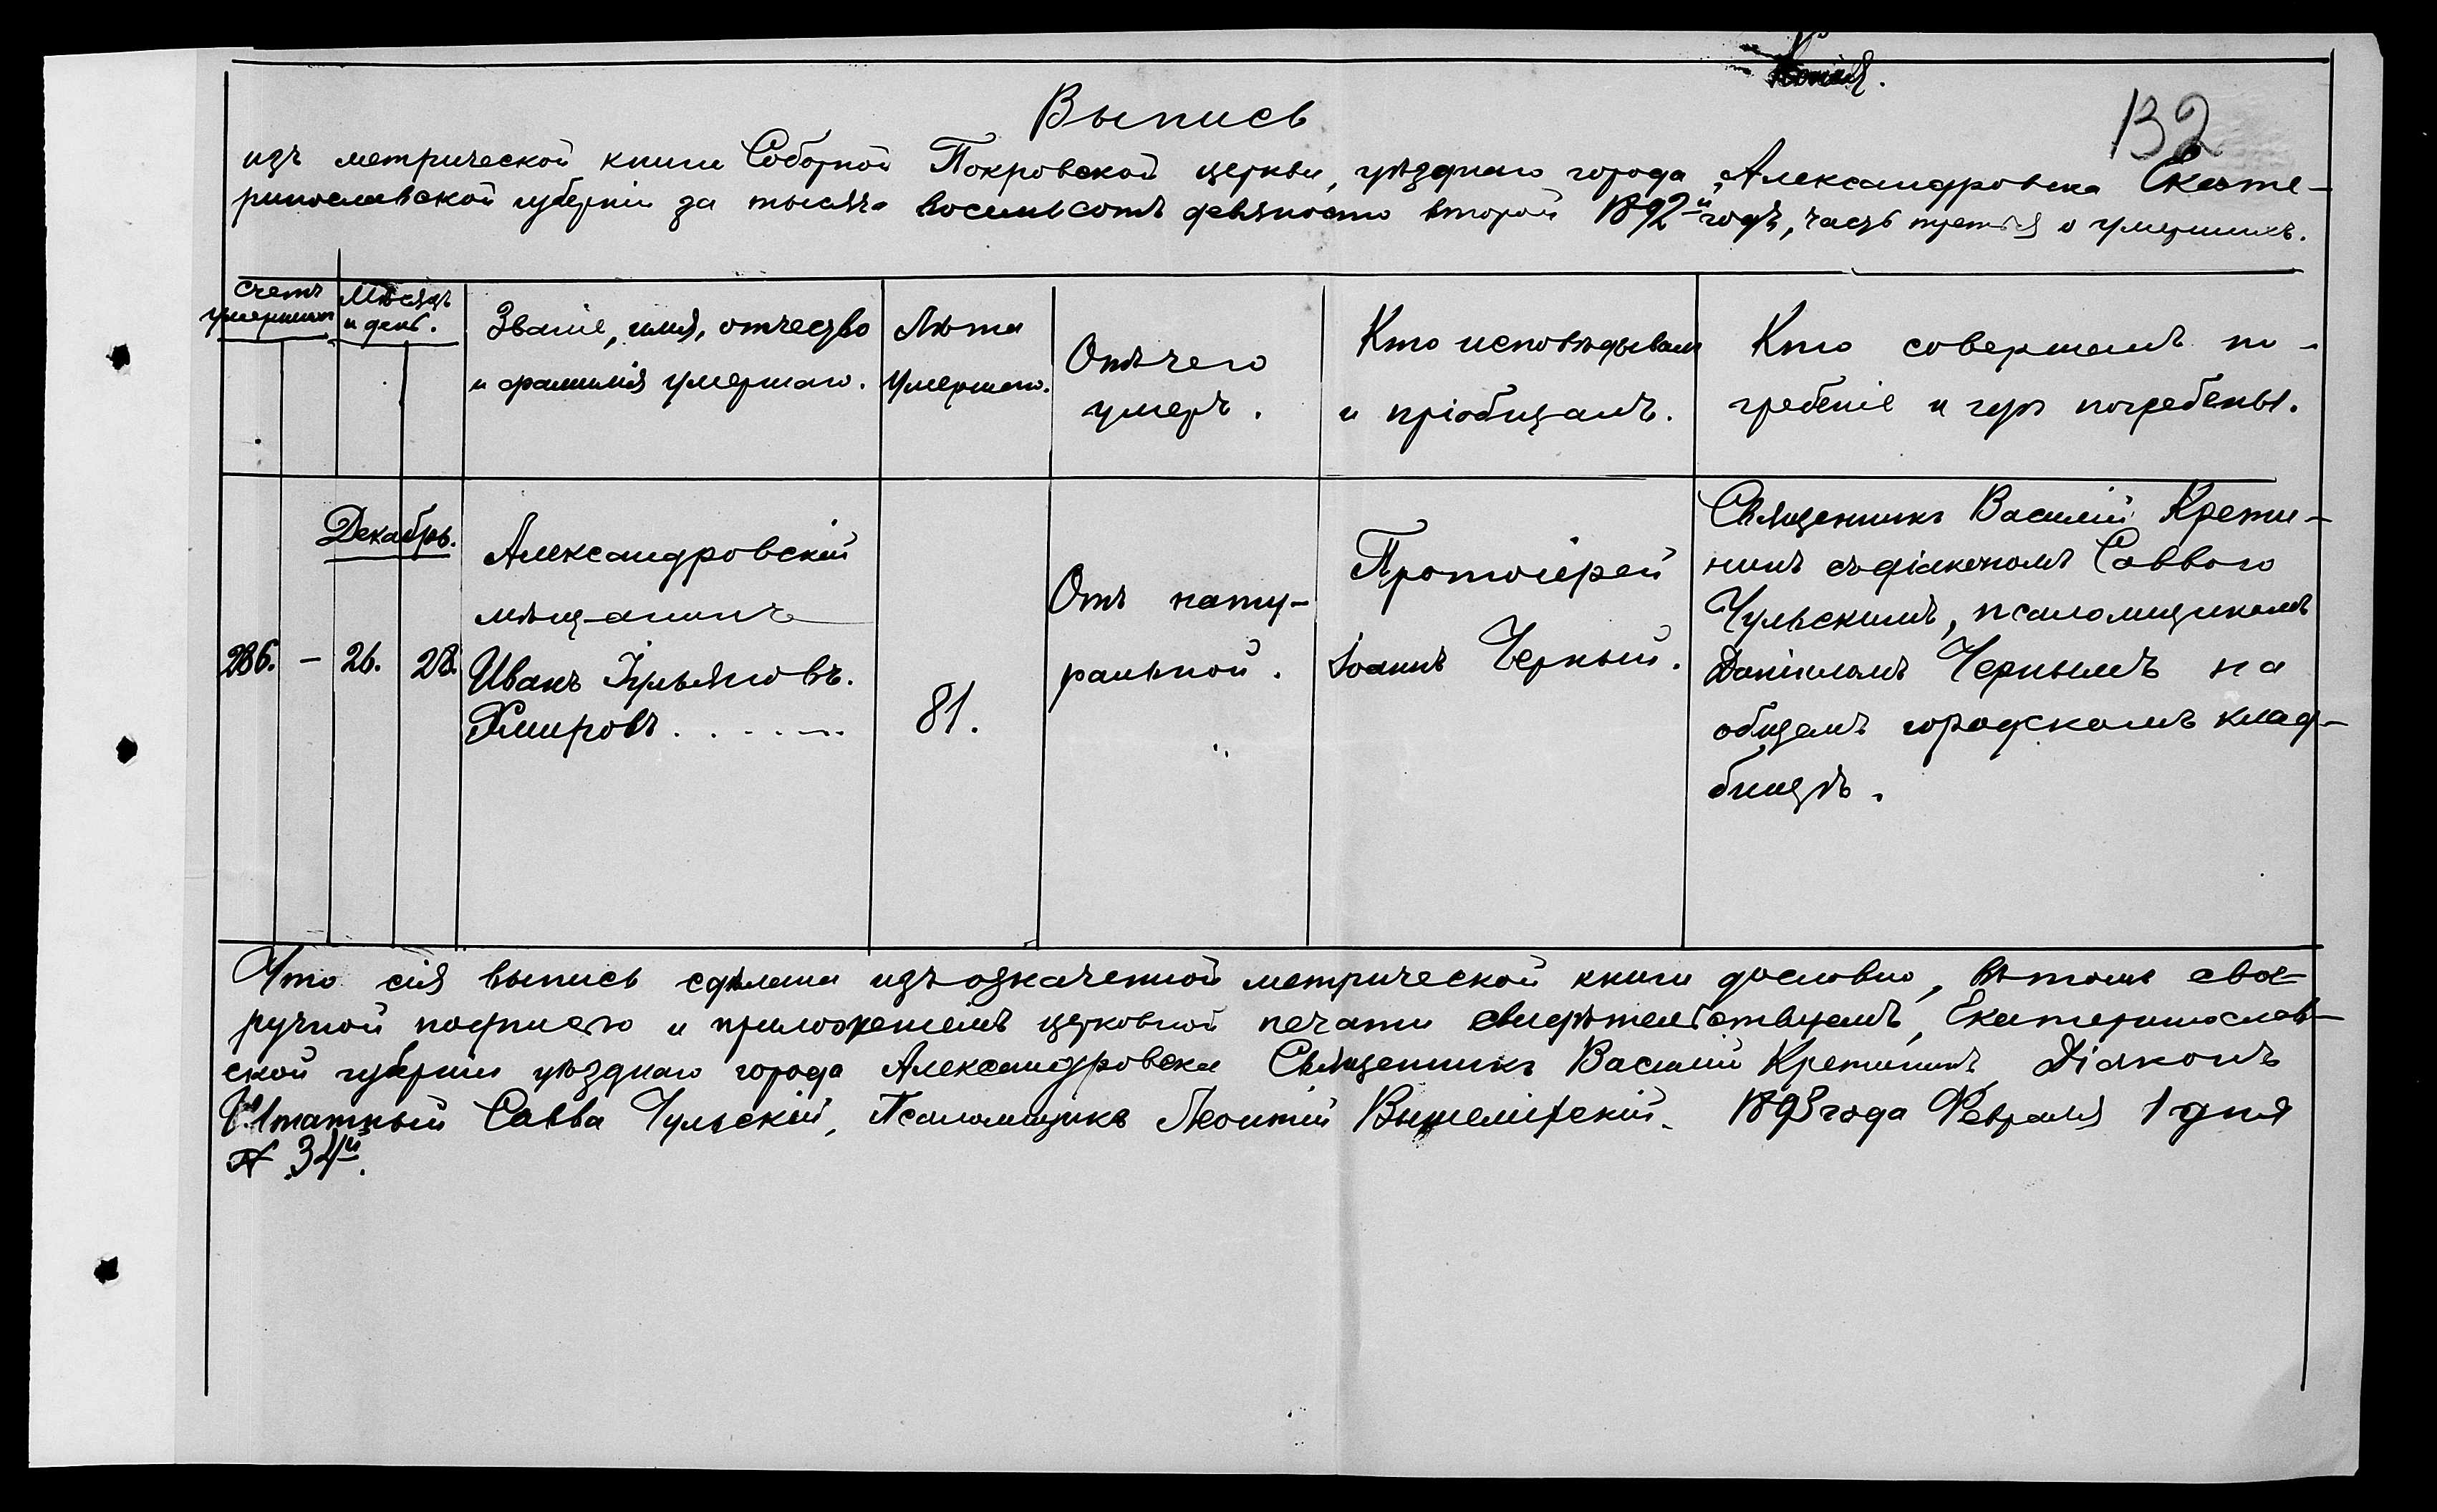 Копія.
132
Выпись
изъ метрической книги Соборной Покровской церкви, уѣзднаго города Александровска Екате-
ринославской губерніи за тысяча восемьсотъ девяносто второй 1892й годъ, часть третья о умершихъ.
Счетъ
умершихъ
Мѣсяцъ
и день.
Званіе, имя, отчество
и фамилія умершаго.
Лѣта
умершаго.
Отъ чего
умеръ.
Кто исповѣдывалъ
и пріобщалъ.
Кто совершалъ по-
гребеніе и гдѣ погребены.
286. – Декабрь. 26. 28.
Александровскій
мѣщанинъ
Иванъ
Хмировъ . . . . . .
81.
Отъ нату-
ральной.
Протоіерей
Іоаннъ Черный.
Священникъ Василій Крети-
нинъ съ діакономъ Саввою
Чульскимъ, псаломщикомъ
Даніиломъ Чернымъ на
общемъ городскомъ клад-
бищѣ.
Что сія выпись сдѣлана изъ означенной метрической книги дословно, въ томъ свое-
ручной подписью и приложеніемъ церковной печати свидѣтельствуемъ, Екатеринослав-
ской губерніи уѣзднаго города Александровска Священникъ Василій Кретининъ, Діаконъ
Штатный Савва Чульскій, Псаломщикъ Леонтій 1893 года Февраля 1 дня
№ 34й.